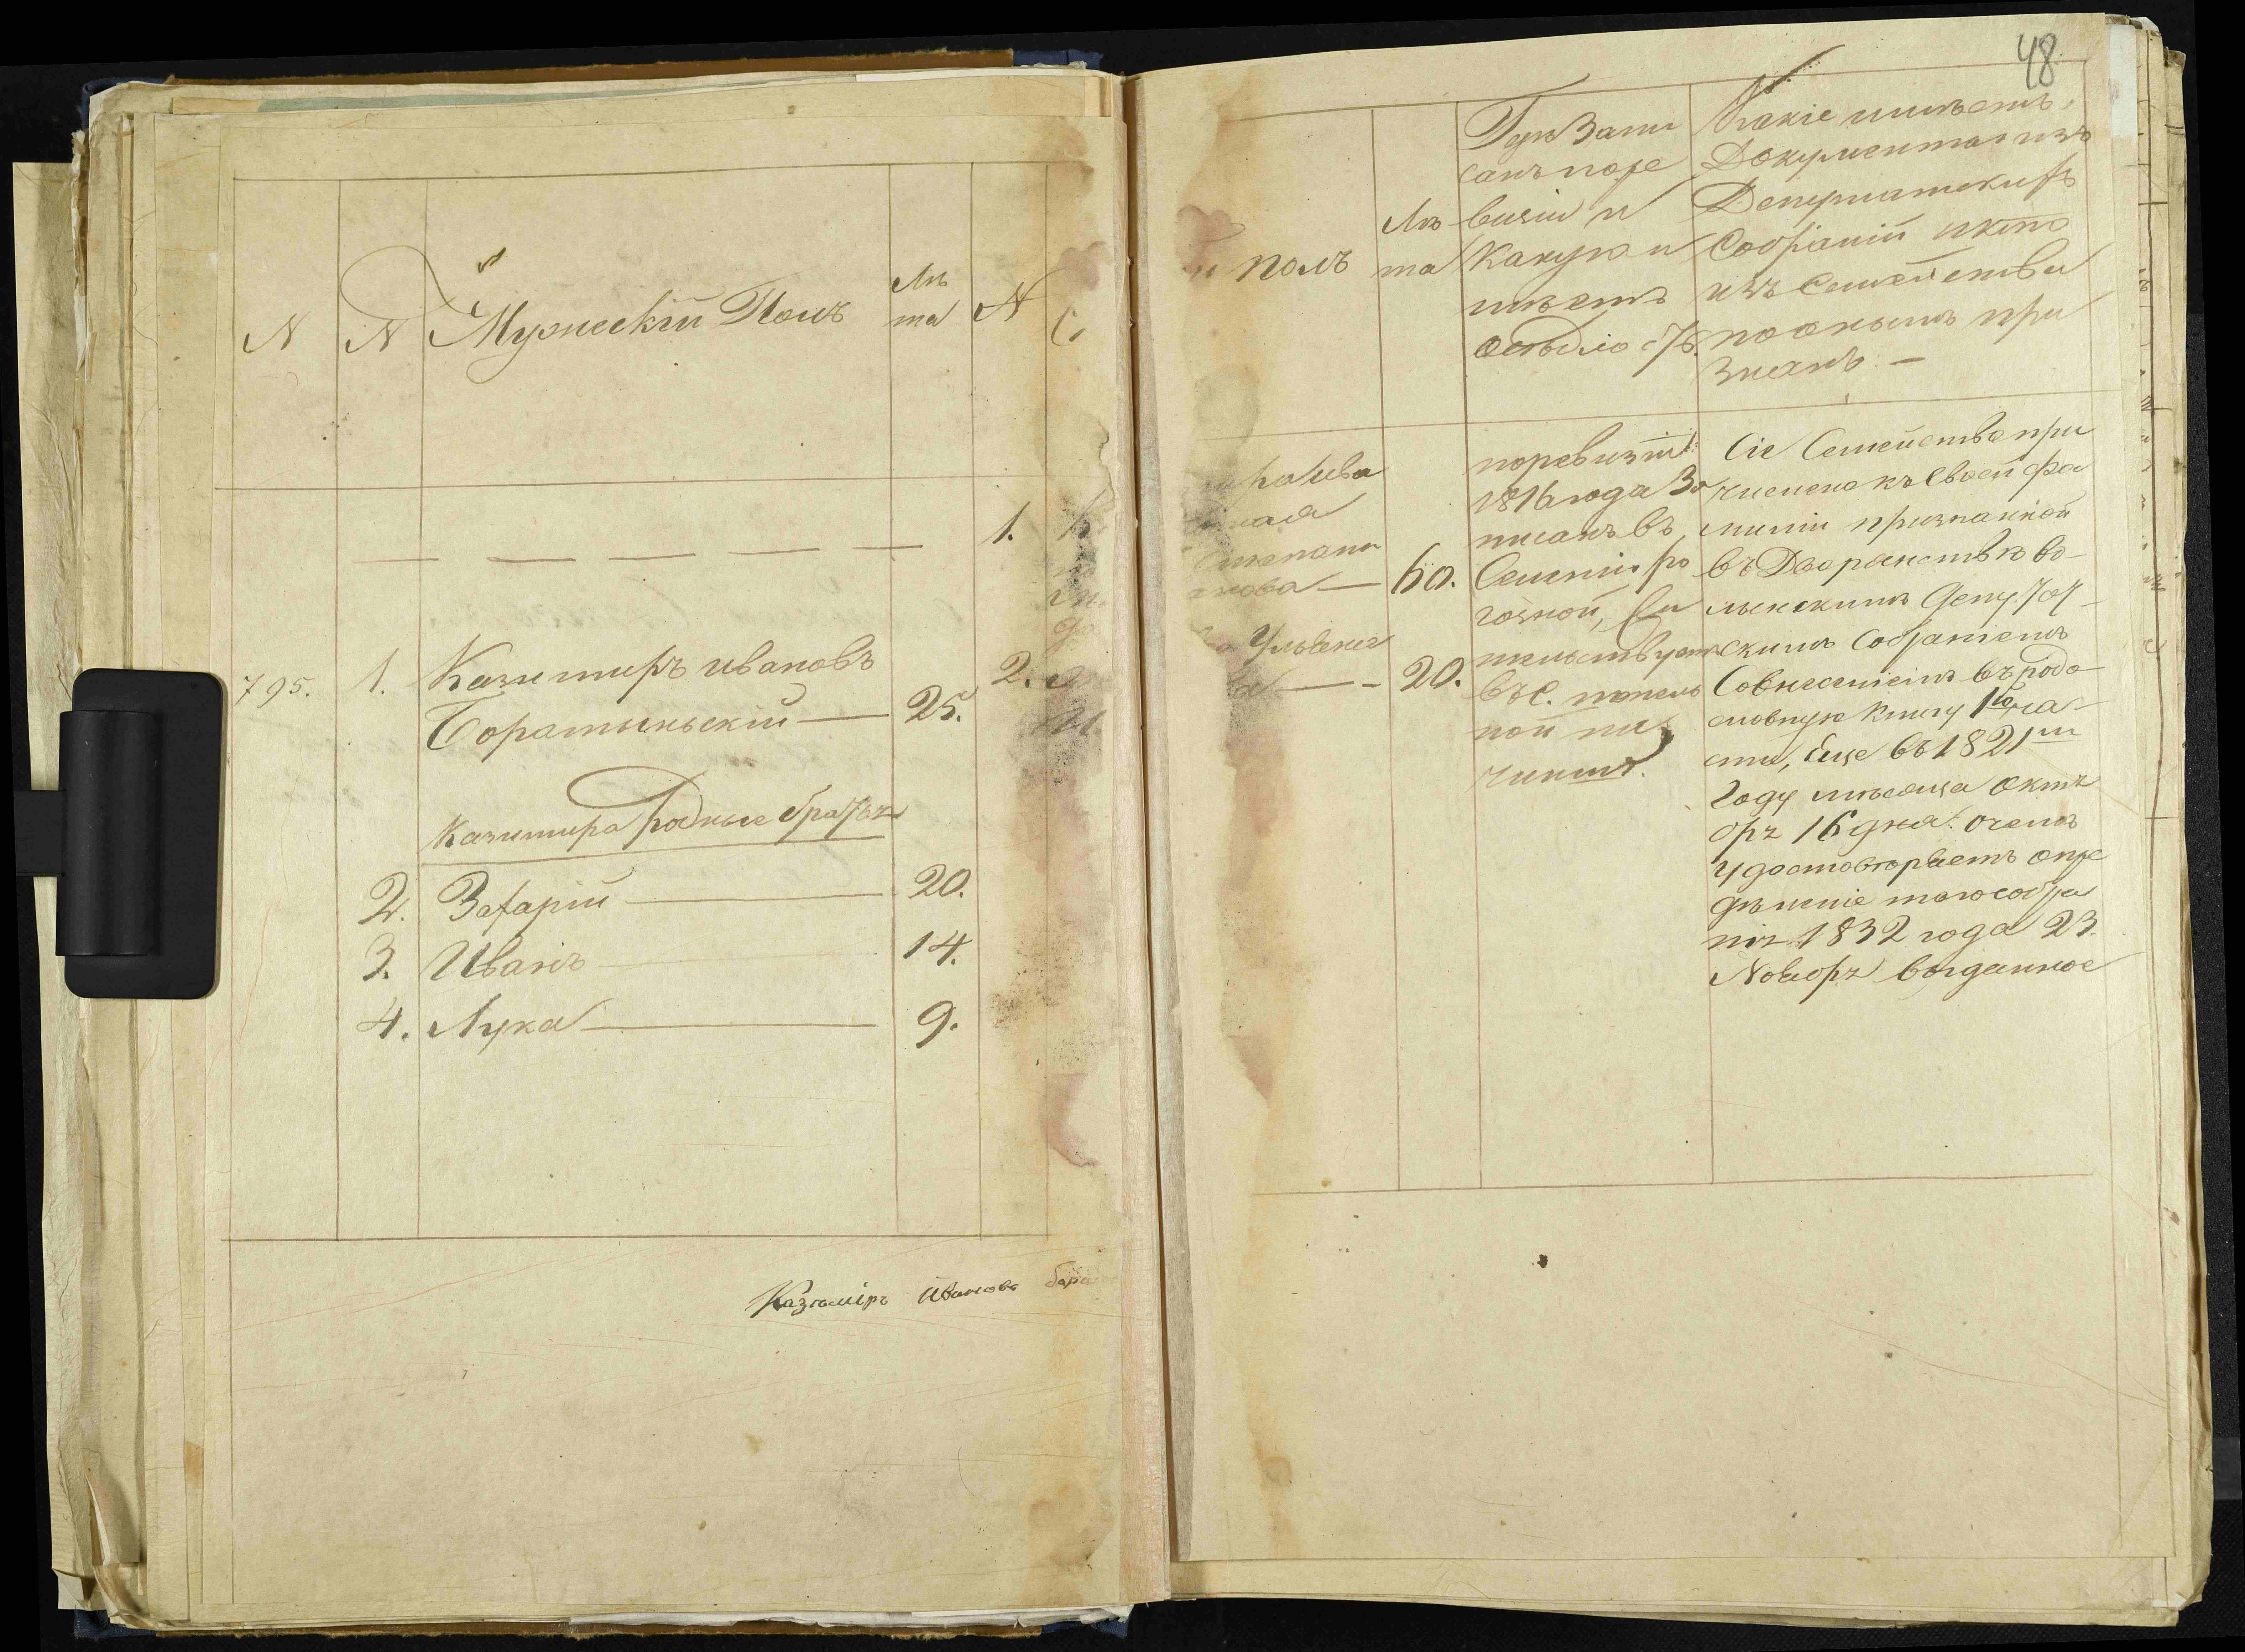 48
N
N
Мужескій Полъ
Лѣ
та
N
1.
795.
1.
Казимиръ Ивановъ
Боратыньскій — 25.
2.
Казимира Родные братья
2. Захарій — 20.
3. Иванъ — 14.
4. Лука — 9.
Казиміръ Ивановъ
полъ
Лѣ
та
Гдѣ Запи
санъ поре
визіи и
Какую и
мѣетъ
осѣдло-ть.
Какіе имѣетъ
Документы изъ
Депутатскихъ
Собраній и кто
изъ Семейства
по онымъ при
знанъ. —
60.
20.
по ревизіи
1816 года За
писанъ въ
тельствуетъ
чиншъ.
Сіе Семейство при
числено къ Своей фа
миліи признанной
въ Дворянствѣ Ви-
льнскимъ Депутат-
скимъ Собраніемъ
Совнесеніемъ въ родо-
словную Книгу 1ю ча-
сти, Еще въ 1821м
Году мѣсяца октя
бря 16 дня. О чемъ
удостовѣряетъ опре
дѣленіе того собра
нія 1832 года 23.
Ноября выданное